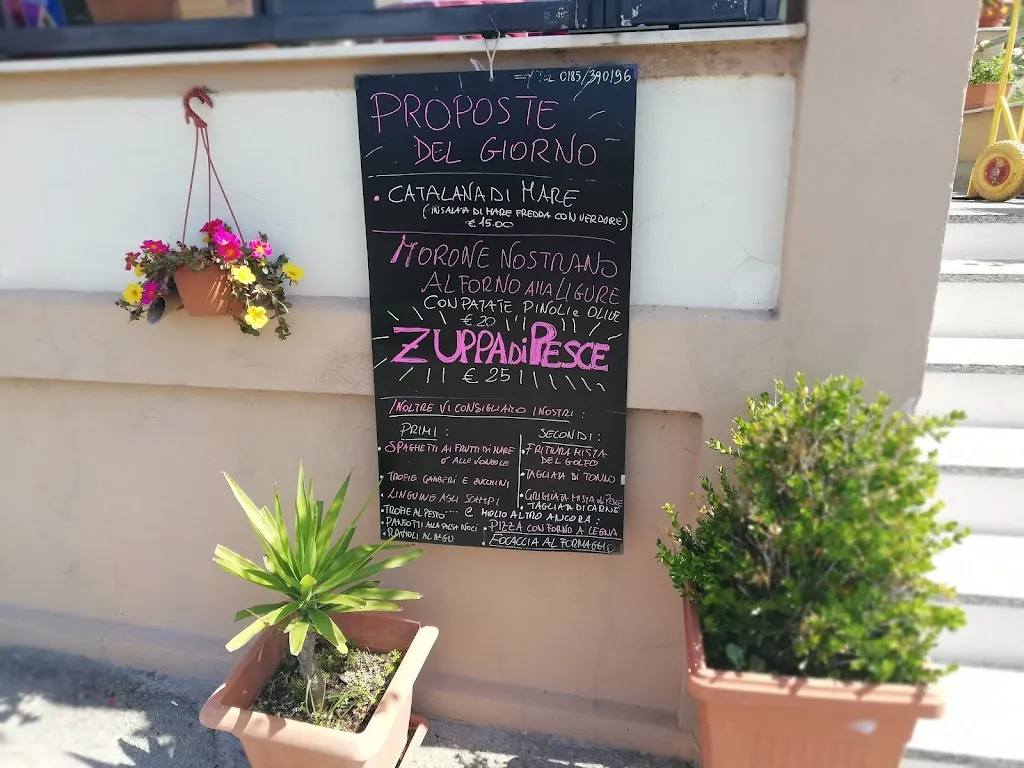 TEL 0185/390196
PROPOSTE
DEL GIORNO
• CATALANA DI MARE
(INSALATA DI MARE FREDDA CON VERDURE)
€ 15.00
MORONE NOSTRANO
AL FORNO ALLA LIGURE
CON PATATE PINOLI e OLIVE
€ 20
ZUPPA DI PESCE
€ 25
INOLTRE VI CONSIGLIAMO I NOSTRI :
PRIMI :
• SPAGHETTI AI FRUTTI DI MARE
O ALLE VONGOLE
• TROFIE GAMBERI E ZUCCHINI
• LINGUINE AGLI SCAMPI
• TROFIE AL PESTO
• PANSOTTI ALLA SALSA NOCI
• RAVIOLI AL RAGU
SECONDI :
• FRITTURA MISTA
DEL GOLFO
• TAGLIATA DI TONNO
• GRIGLIATA MISTA di PESCE
TAGLIATA DI CARNE
.... E MOLTO ALTRO ANCORA :
• PIZZA CON FORNO A LEGNA
FOCACCIA AL FORMAGGIO